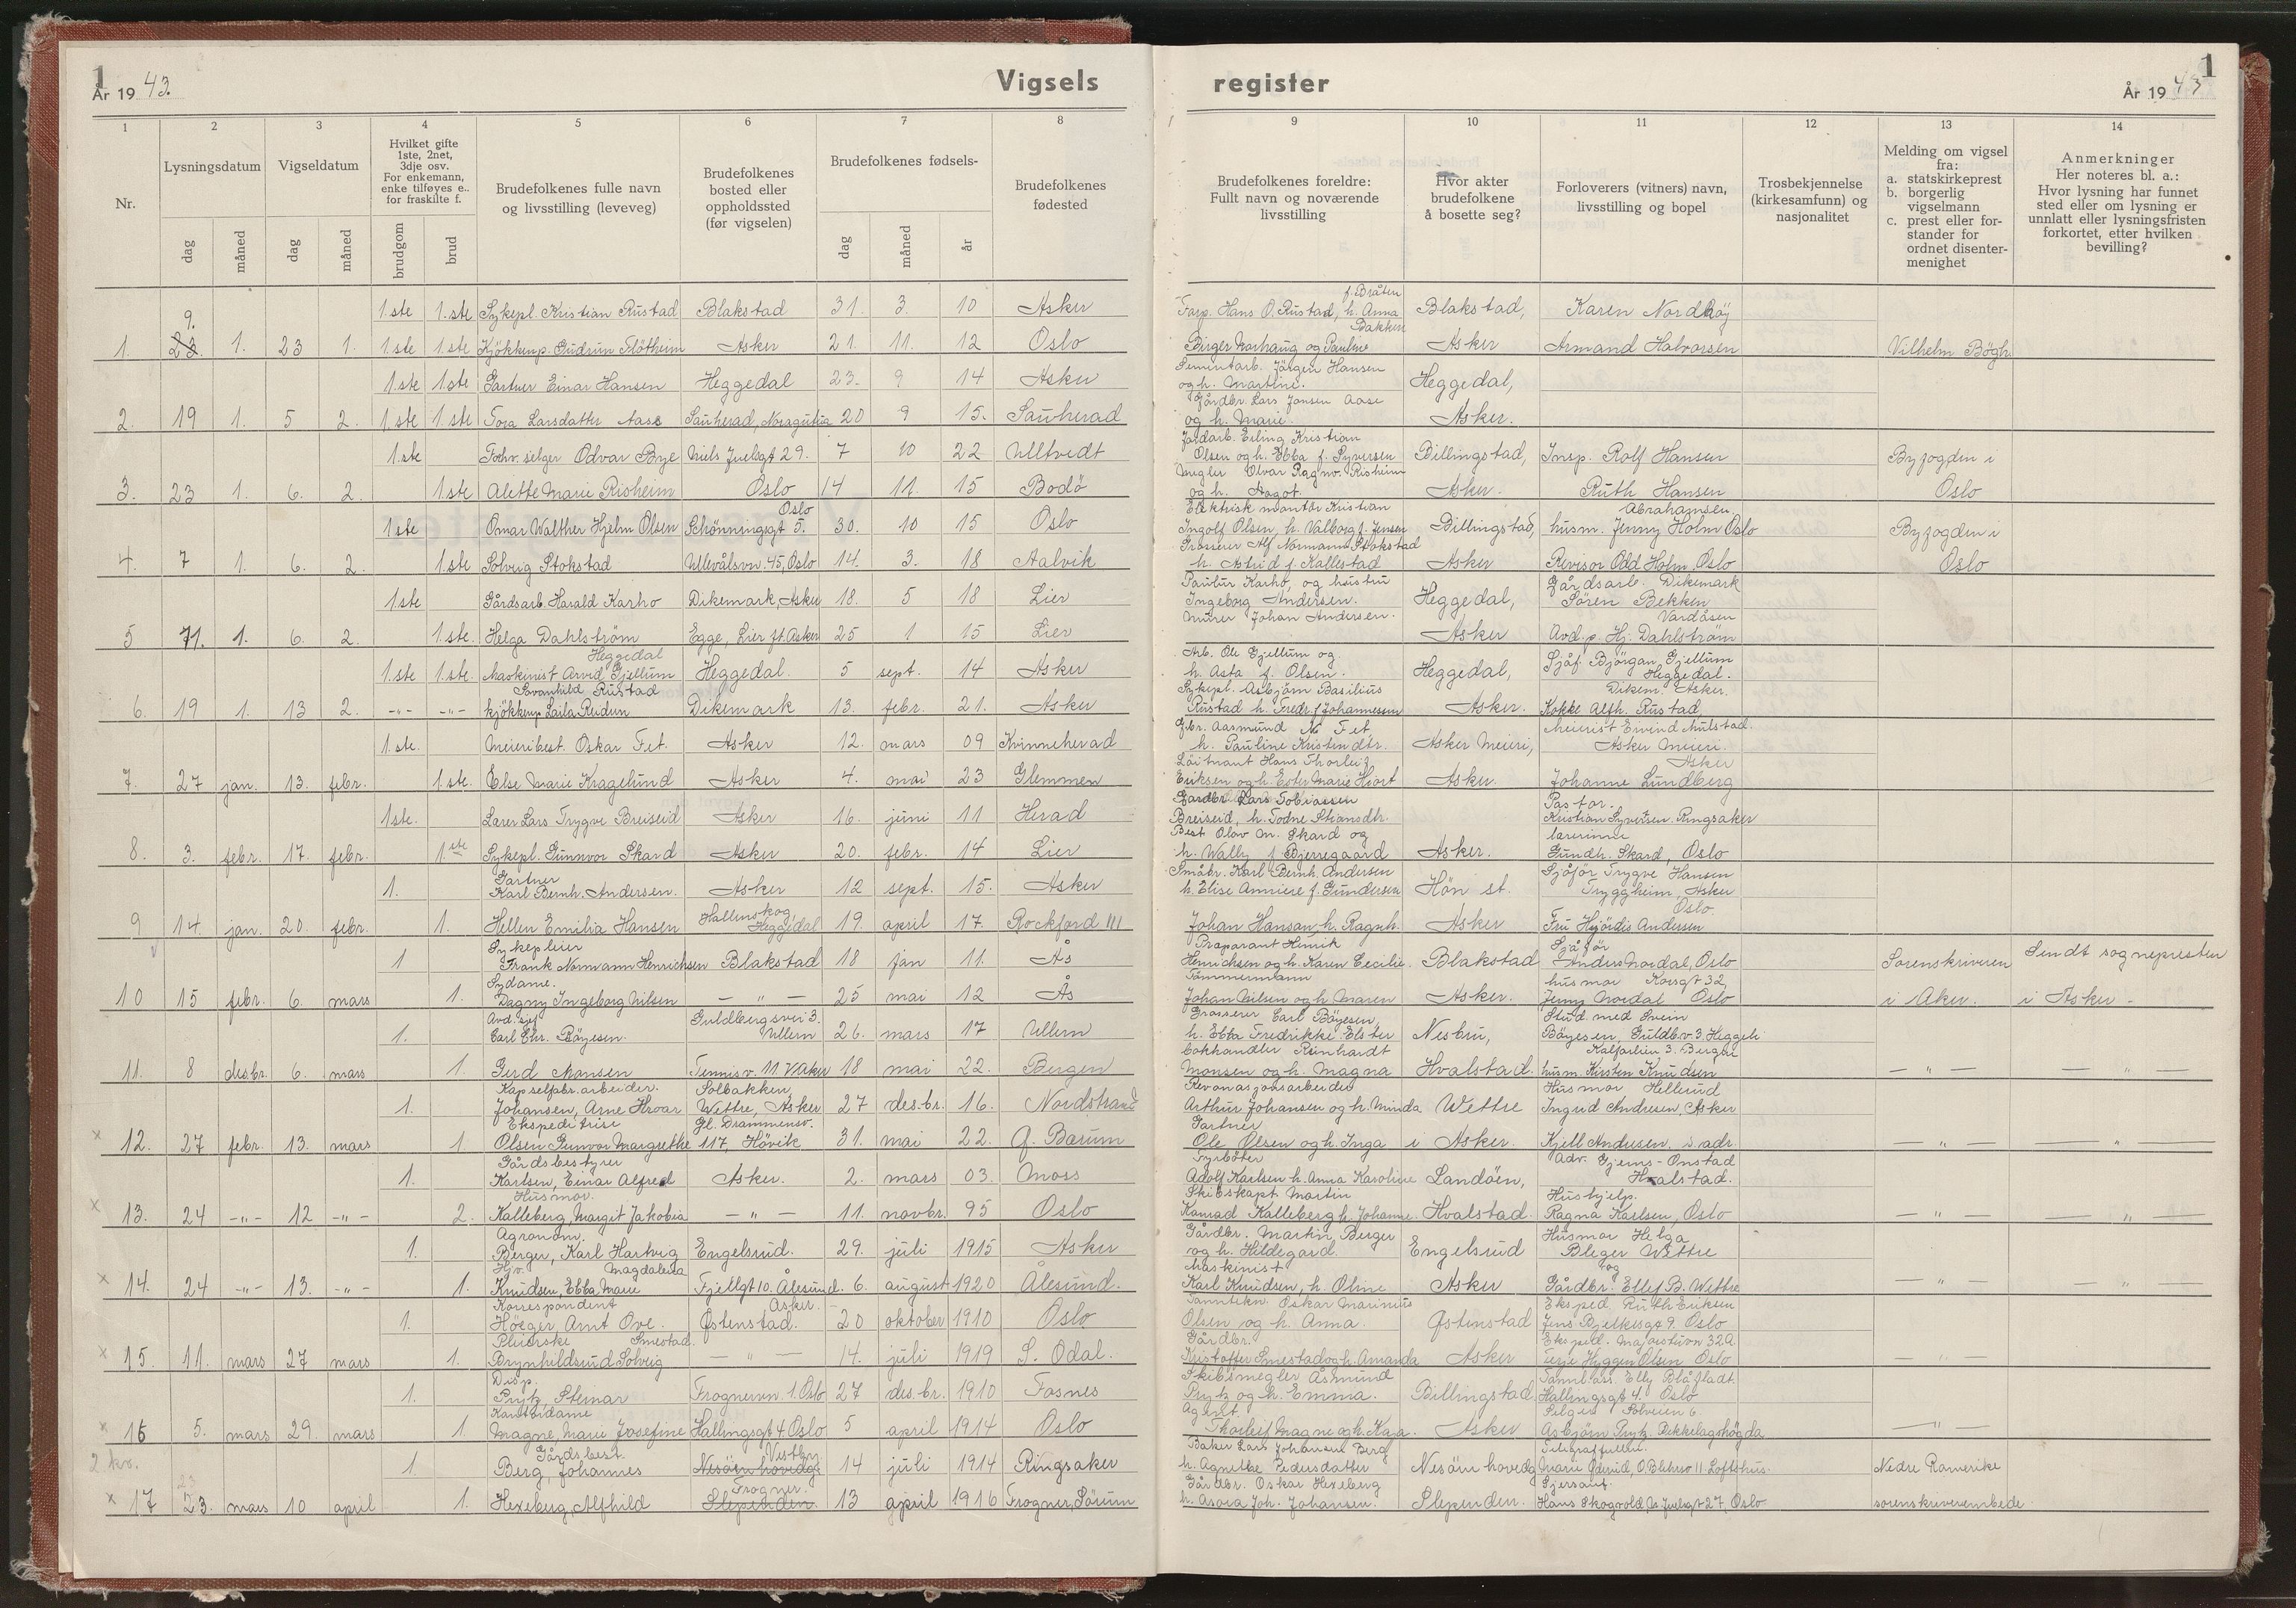 1
År 1943.
Vigsels
register
1
År 1943
1 2 3 4 5 6 7 8 9 10 11 12 13 14
Nr.
Lysningsdatum
dag måned
Vigseldatum
dag måned
Hvilket gifte
1ste, 2net,
3dje osv.
For enkemann,
enke tilføyes e..
for fraskilte f.
brudgom brud
Brudefolkenes fulle navn
og livsstilling (leveveg)
Brudefolkenes
bosted eller
oppholdssted
(før vigselen)
Brudefolkenes fødsels-
dag måned år
Brudefolkenes
fødested
Brudefolkenes foreldre:
Fullt navn og noværende
livsstilling
Hvor akter
brudefolkene
å bosette seg?
Forloverers (vitners) navn,
livsstilling og bopel
Trosbekjennelse
(kirkesamfunn) og
nasjonalitet
Melding om vigsel
fra:
a. statskirkeprest
b. borgerlig
vigselmann
c. prest eller for-
stander for
ordnet disenter-
menighet
Anmerkninger
Her noteres bl. a.:
Hvor lysning har funnet
sted eller om lysning er
unnlatt eller lysningsfristen
forkortet, etter hvilken
bevilling?
f. Bråten
1.ste 1.ste Sykepl. Kristian Rustad Blakstad 31. 3. 10 Asker Hans O. Rustad, h. Anna Blakstad, Karen Nordhøy
9. Bakken
1. 23. 1. 23 1. 1.ste 1.ste Kjøkkenp. Gudrun Fløtheim Asker 21. 11. 12 Oslo Birger Narhaug og Pauline Asker Armand Halvorsen Vilhelm Bøgh
1.ste 1.ste Gartner Einar Hansen Heggedal 23. 9 14 Asker Sementarb. Jørgen Hansen
og h. Martine. Heggedal,
2. 19 1. 5 2. 1.ste 1.ste Tora Larsdatter Aase Sauherad, Noragutua 20 9 15. Sauherad Gårdbr. Lars Jansen Aase
og h. Marie. Asker.
1.ste Forhv. selger Odvar Bye Niels Juelsgt 29. 7 10 22 Ullfvedt Jordarb. Erling Kristian
Olsen og h. Ebba f. Syversen Billingstad, Insp. Rolf Hansen Byfogden i
3. 23 1. 6. 2. 1.ste Alette Marie Risheim Oslo 14 11. 15 Bodø Olvar Ragnv. Risheim
og h. Aagot. Asker. Ruth Hansen Oslo
1.ste Omar Walther Hjelm Olsen Schönningsgt 5. Oslo 30. 10 15 Oslo Elektrisk montør Kristian
Ingolf Olsen, h. Valborg f. Jensen Billingstad, Abrahamsen.
husm. Jenny Holm Oslo Byfogden i
4. 7 1. 6. 2. 1.ste Solveig Stokstad Ullevålsvn. 45, Oslo 14. 3. 18 Aalvik Grosserer Alf Normann Stokstad
h. Astrid f. Kallestad Asker Revisor Odd Holm, Oslo Oslo
1.ste Gårdsarb. Harald Karho Dikemark, Asker 18. 5 18 Lier Paulur Karho, og hustru
Ingeborg Andersen. Heggedal, Gårdsarb. Dikemark
Sören Bekken
5 71. 1. 6. 2. 1.ste. Helga Dahlström Egge, Lier ft. Asker 25 1 15 Lier Murer Johan Andersen. Asker Vardåsen
Avd. p. Hj. Dahlström
Heggedal
1.ste 1.ste. Maskinist Arvid Gjellum Heggedal. 5 sept. 14 Asker Arb. Ole Gjellum og
h. Asta f. Olsen. Heggedal, Sjåf. Bjørgan Gjellum
Heggedal.
Svanhild Rustad
6. 19 1. 13 2. -"- -"- kjøkkenp. Laila Rudun Dikemark 13. febr. 21. Asker Sykepl. Asbjørn Basilius
Rustad h. Fredr. f. Johannessen Asker. Dikem. Asker.
Kokke Alfh. Rustad
1.ste. Meieribest. Oskar Fet. Asker 12. mars 09 Kvinneherad Gbr. Aasmund N. Fet
h. Pauline Kristendtr. Asker Meieri, Meierist Eivind Mulstad.
Asker Meieri.
7. 27 jan. 13. febr. 1.ste. Else Marie Kragelund Asker 4. mai 23 Glemmen Løitnant Hans Thorleif
Eriksen og h. Ester Marie Hjort Asker. Asker
Johanne Lundberg
1ste. Lærer Lars Trygve Breiseid Asker 16. juni 11 Herad Gardbr. Lars Tobiassen
Breiseid, h. Todne Stiansdtr. Pastor.
Kristian Syvertsen. Ringsaker
8. 3. febr. 17. febr. 1.ste Sykepl. Gunnvor Skard Asker 20. febr. 14 Lier Best. Olav M. Skard og
h. Wally f. Bjerregaard Asker. lærerinne
Gundh. Skard, Oslo
1. Gartner
Karl Bernh. Andersen. Asker 12 sept. 15. Asker Småbr. Karl Bernh. Andersen
h. Elise Anniere f. Gundersen Hön st. Sjåför Trygve Hansen
Tryggheim, Asker
9 14. jan. 20. febr. 1. Hellen Emilia Hansen Hallenskog,
Heggedal 19. april 17. Rockford Ill Johan Hansan, h. Ragnh. Asker Oslo.
Fru Hjördis Andersen
1 Sykepleier
Frank Normann Henrichsen Blakstad 18 jan 11. Ås Præparant Henrik
Henrichsen og h. Karen Cecilie. Blakstad Sjåför
Anders Nordal, Oslo Sorenskriveren Sendt sognepresten
10 15 febr. 6. mars 1. Sydame.
Dagny Ingeborg Nilsen — " — 25 mai 12 Ås Tømmermann
Johan Nilsen og h. Maren Asker. husmor Korsgt 32,
Jenny Nordal Oslo i Aker. i Asker -
1. Avd. sjef
Carl Chr. Böyesen. Guldbergsvei 3.
Ullern 26. mars 17 Ullern Grosserer Carl Böyesen,
h. Ebba Fredrikke Elster Nesbru, Stud. med Svein
Böyesen, Guldb.v 3. Heggeli
11. 8 des.br. 6. mars 1. Gerd Monsen Tennisv. 11. V.Aker 18 mai 22. Bergen Bokhandler Reinhardt
Monsen og h. Magna Hvalstad. Kalfarlien 3. Bergen
husm. Kirsten Knudsen — " — — " —
1. Kapselfabr.arbeider.
Johansen, Arne Hroar Solbakken,
Wettre, Asker 27 des.br. 16. Nordstrand Arthur Johansen og h. Minda Wettre Husmor Hellerud
Ingrid Andresen, Asker
x 12. 27 febr. 13. mars 1 Ekspeditrise
Olsen Gunvor Margrethe Gl. Drammensv.
117, Hövik 31. mai 22. Ø. Bærum Gartner
Ole Olsen og h. Inga i Asker. Kjell Andersen, s. adr. — " — — " —
1. Gårdsbestyrer
Karlsen, Einar Alfred Asker. 2. mars 03. Moss Fyrböter
Adolf Karlsen h. Anna Karoline Landöen, Adv. Gjems-Onstad
Hvalstad.
x 13. 24 -"- 12 -"- 2. Husmor.
Kalleberg, Margit Jakobia — " — 11. novbr. 95 Oslo Skibskapt. Martin
Konrad Kalleberg h. Johanne. Hvalstad. Hushjelp.
Ragna Karlsen, Oslo — " — — " —
1. Agronom.
Berger, Karl Hartvig Engelsrud. 29. juli 1915 Asker Gårdbr. Martin Berger
og h. Hildegard. Engelsrud Husmor Helga
Bleger Wettre
x 14. 24 -"- 13. -"- 1. Hjv. Magdalena
Knudsen, Ebba Marie Fjellgt 10. Ålesund. 6. august 1920 Ålesund. Maskinist
Karl Knudsen, h. Oline Asker og
Gårdbr. Ellef B. Wettre — " — — " —
1. Korrespondent
Höeger, Arnt Ove. Asker.
Østenstad. 20 oktober 1910 Oslo Oskar Marinius
Olsen og h. Anna. Østenstad Eksped. Ruth Eriksen
Jens Bjelkesgt 9. Oslo
x 15. 11. mars 27 mars 1. Pleierske Smestad.
Brynhildsrud Solveig — " — 14. juli 1919 S. Odal. Gårdbr.
Kristoffer Smestad og h. Amanda Asker Eksped. Majorstuvn 32A
Terje Hyggen Olsen Oslo
1. Disp.
Prytz, Steinar Frognervn. 1. Oslo 27 des.br. 1910 Fosnes Skibsmegler Åsmund
Prytz og h. Emma. Billingstad. Tannl.ass. Elly Blåfladt.
Hallingsgt 4. Oslo
x 16 5. mars 29. mars 1. Kontordame
Magne, Marie Josefine Hallingsgt 4 Oslo 5 april 1914 Oslo Agent.
Thorleif Magne og h. Kaja. Asker Selger Solveien 6.
Asbjörn Prytz. Bekkelagshögda — " —
2 kv. 1 Gårdsbest.
Berg, Johannes Vestby
Nesöen hovedg. 14 juli 1914 Ringsaker Baker Lars Johansen Berg
h. Agnethe Pedersdatter Nesöen hovedg Nedre Romerike
23
x 17 23. mars 10 april 1. Hexeberg, Alfhild Frogner.
Slependen. 13 april 1916 Frogner, Sörum Gårdbr. Oskar Hexeberg
h. Asora Joh. Johansen. Slependen. Sjersant.
Hans Skogvold, N. Juelsgt 27, Oslo sorenskriverembede